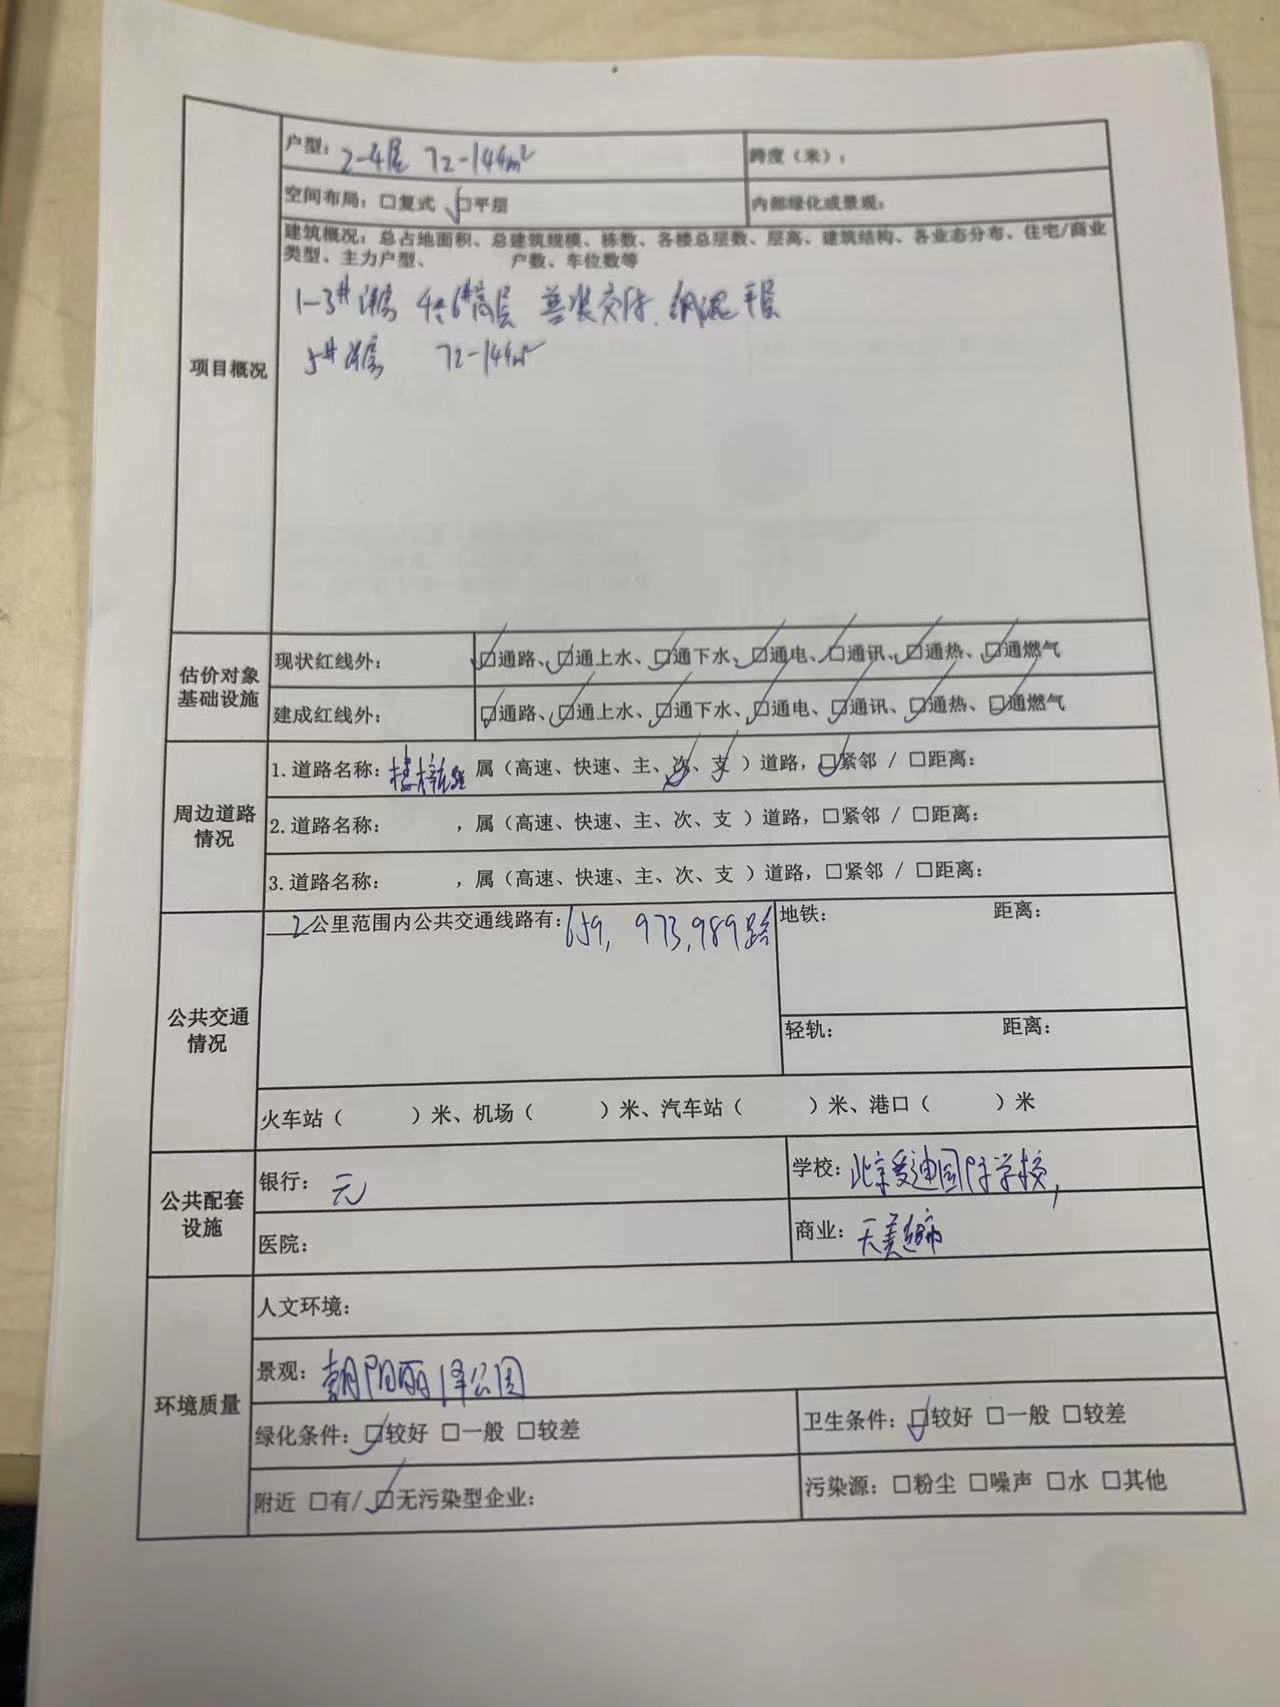 户型：2-4居 72-144m²
跨度（米）：
空间布局：□复式 ☑平层
内部绿化或景观：
建筑概况：总占地面积、总建筑规模、栋数、各楼总层数、层高、建筑结构、各业态分布、住宅/商业
类型、主力户型、 户数、车位数等
1-3# 洋房 4-6#高层 普装交付、钢混 平层
5# 洋房 72-144m²
项目概况
估价对象
基础设施
现状红线外：
☑通路、☑通上水、☑通下水、☑通电、☑通讯、☑通热、☑通燃气
建成红线外：
☑通路、☑通上水、☑通下水、☑通电、☑通讯、☑通热、☑通燃气
周边道路
情况
1.道路名称：楼梓庄路 属（高速、快速、主、次、支 ）道路，☑紧邻 / □距离：
2.道路名称： ，属（高速、快速、主、次、支 ）道路，□紧邻 / □距离：
3.道路名称： ，属（高速、快速、主、次、支 ）道路，□紧邻 / □距离：
公共交通
情况
2公里范围内公共交通线路有：659, 973,989路
地铁： 距离：
轻轨： 距离：
火车站（ ）米、机场（ ）米、汽车站（ ）米、港口（ ）米
公共配套
设施
银行：元
学校：北京爱迪国际学校，
医院：
商业：天美超市
环境质量
人文环境：
景观：朝阳丽泽公园
绿化条件：☑较好 □一般 □较差
卫生条件：☑较好 □一般 □较差
附近 □有/ ☑无污染型企业：
污染源：□粉尘 □噪声 □水 □其他